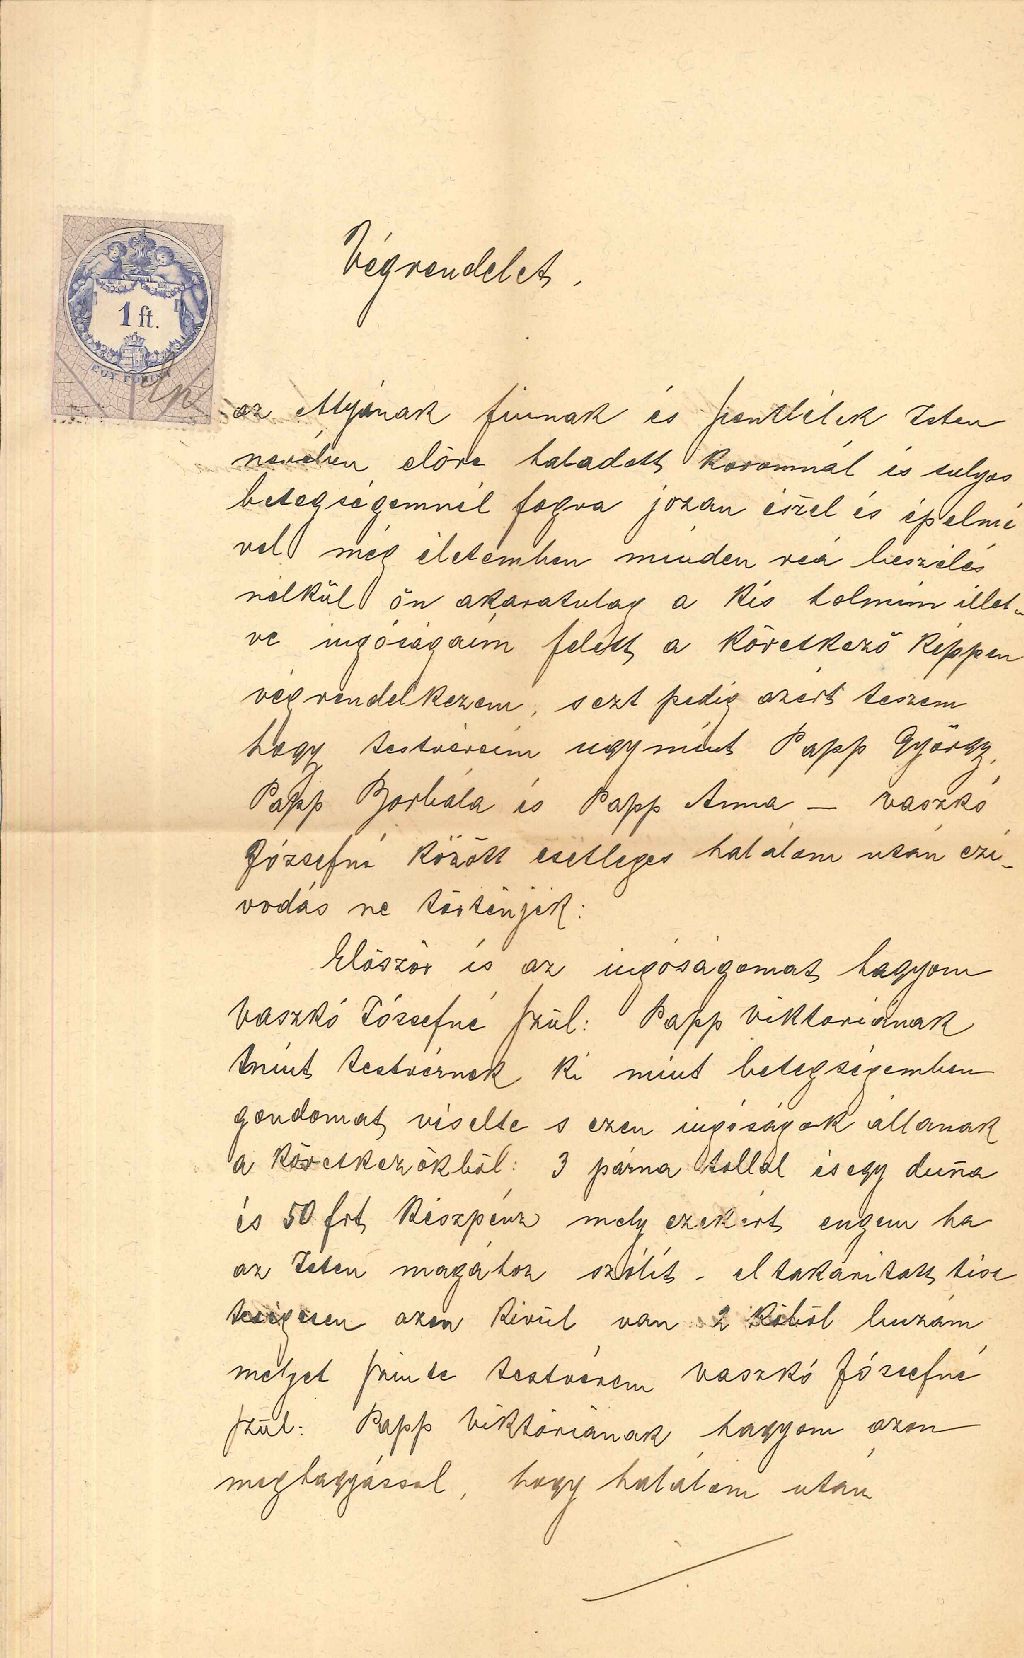 Végrendelet.
1 ft.
EGY FORINT
az Atyának fiunak és szentlélek Isten
nevében előre haladott koromnál és sulyos
betegségemnél fogva józan észel és épelmé
vel még életemben minden reá beszélés
nélkül ön akaratulag a kis holmim illet-
ve ingóságaim felett a következő képpen
végrendelkezem, s ezt pedig azért teszem
hogy testvéreim ugymint Papp György,
Papp Borbála és Papp Anna — Vaszkó
Józsefné között esetleges halálom után czi-
vodás ne történjék:
Először is az ingóságomat hagyom
Vaszkó Józsefné szül: Papp Viktoriának
mint testvérnek ki mint betegségemben
gondomat viselte s ezen ingóságok állanak
a következőkből: 3 párna tollal és egy duña
és 50 frt készpénz mely ezekért engem ha
az Isten magához szólít - eltakarított tisz
teségesen azon kivül van 2 köböl buzám
melyet szinte testvérem Vaszkó Józsefné
szül: Papp Viktóriának hagyom azon
meghagyással, hogy halálom után